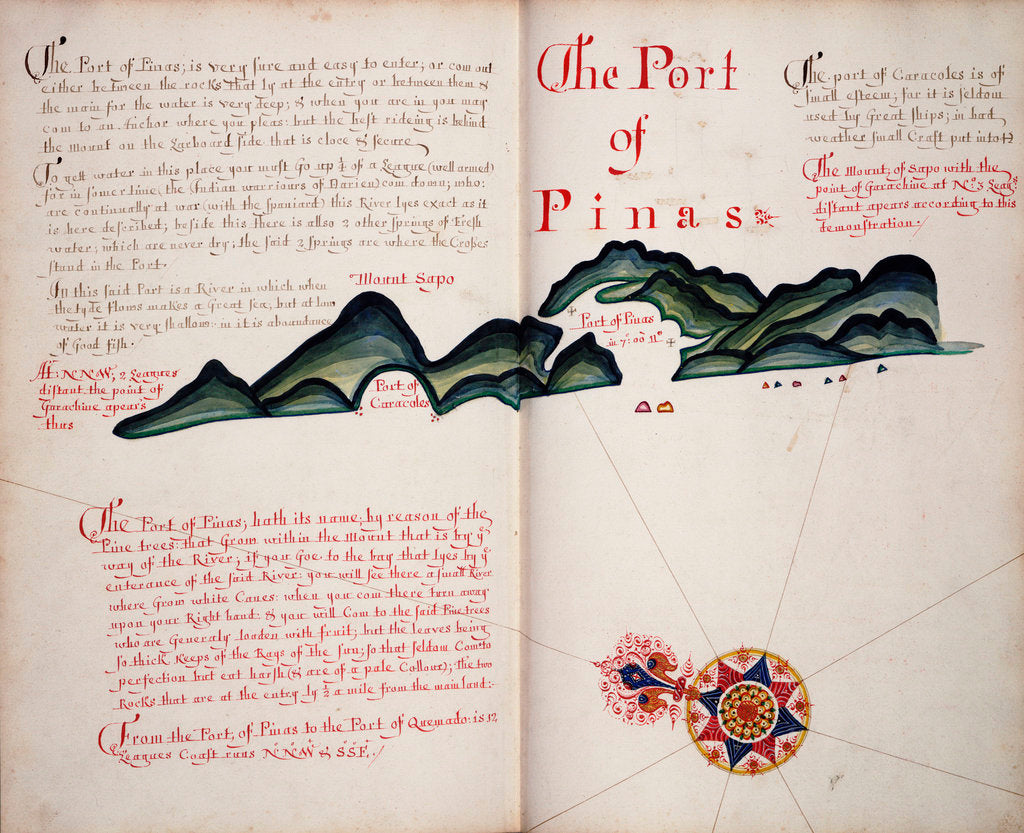 The Port of Pinas; is very sure and easy to enter; or com out
either between the rocks that ly at the entry or between them &
the main for the water is very deep; & when you are in you may
com to an Anchor where you pleas: but the best rideing is behind
the mount on the Larboard side that is cloce & secure
To gett water in this place you must Go up ¼ of a League (well armed)
for in somer time (the Indian warriours of Darien) com down; who:
are continually at war (with the spaniard) this River lyes exact as it
is here described; beside this there is allso 2 other springs of Fresh
water; which are never dry; the said 2 springs are where the Crosses
stand in the Port.
In this said Port is a River in which when
the tyde flows makes a Great sea; but at low
water it is very shallow: in it is aboundance
of Good fish.
Att NNW, 2 Leagues
distant the point of
Garachine apears
thus
Mount Sapo
Port of
Caracoles
The Port
of
Pinas
The port of Caracoles is of
small esteem; for it is seldom
used by Great ships; in bad
weather small Craft put into it
The Mount; of Sapo with the
point of Garachine at No: 3 Leags
distant apears according to this
demonstration.
Port of Pinas
in 7: 00 N
The Port of Pinas; hath its name; by reason of the
Pine trees: that Grow within the Mount that is by ye
way of the River; if you Goe to the bay that lyes by ye
enterance of the said River: you will see there a small River
where Grow white Canes: when you com there turn away
upon your Right hand: & you will Com to the said Pine trees
who are Generaly loaden with fruit; but the leaves being
so thick Keeps of the Rays of the sun; so that seldom Coms to
perfection but eat harsh (& are of a pale Collour); The two
Rocks that are at the entry ly ½ a mile from the main land:
From the Port; of Pinas to the Port of Quemado: is 12
Leagues Coast runs NNW & SSE.